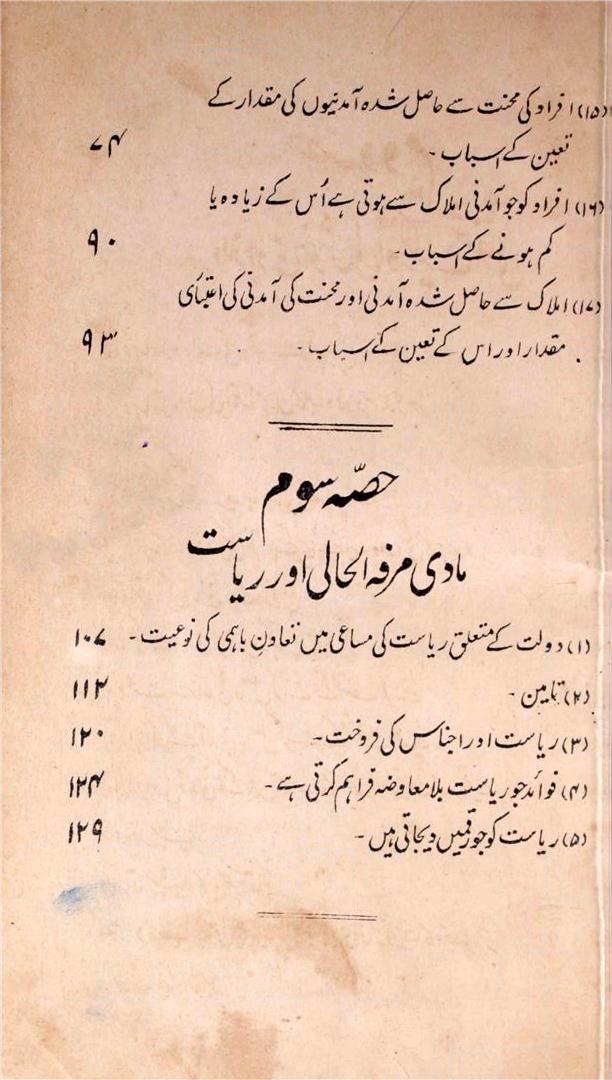 (۱۵) افراد کی محنت سے حاصل شدہ آمدنیوں کی مقدار کے
تعین کے اسباب۔ ۷۴
(۱۶) افراد کو جو آمدنی املاک سے ہوتی ہے اُس کے زیادہ یا
کم ہونے کے اسباب۔ ۹۰
(۱۷) املاک سے حاصل شدہ آمدنی اور محنت کی آمدنی کی اعتباری
مقدار اور اس کے تعین کے اسباب۔ ۹۳
حصّہ سوم
مادی مرفہ الحالی اور ریاست
(۱) دولت کے متعلق ریاست کی مساعی میں تعاونِ باہمی کی نوعیت۔ ۱۰۷
(۲) تامین۔ ۱۱۲
(۳) ریاست اور اجناس کی فروخت۔ ۱۲۰
(۴) فوائد جو ریاست بلا معاوضہ فراہم کرتی ہے۔ ۱۲۴
(۵) ریاست کو جو رقمیں دیجاتی ہیں۔ ۱۲۹